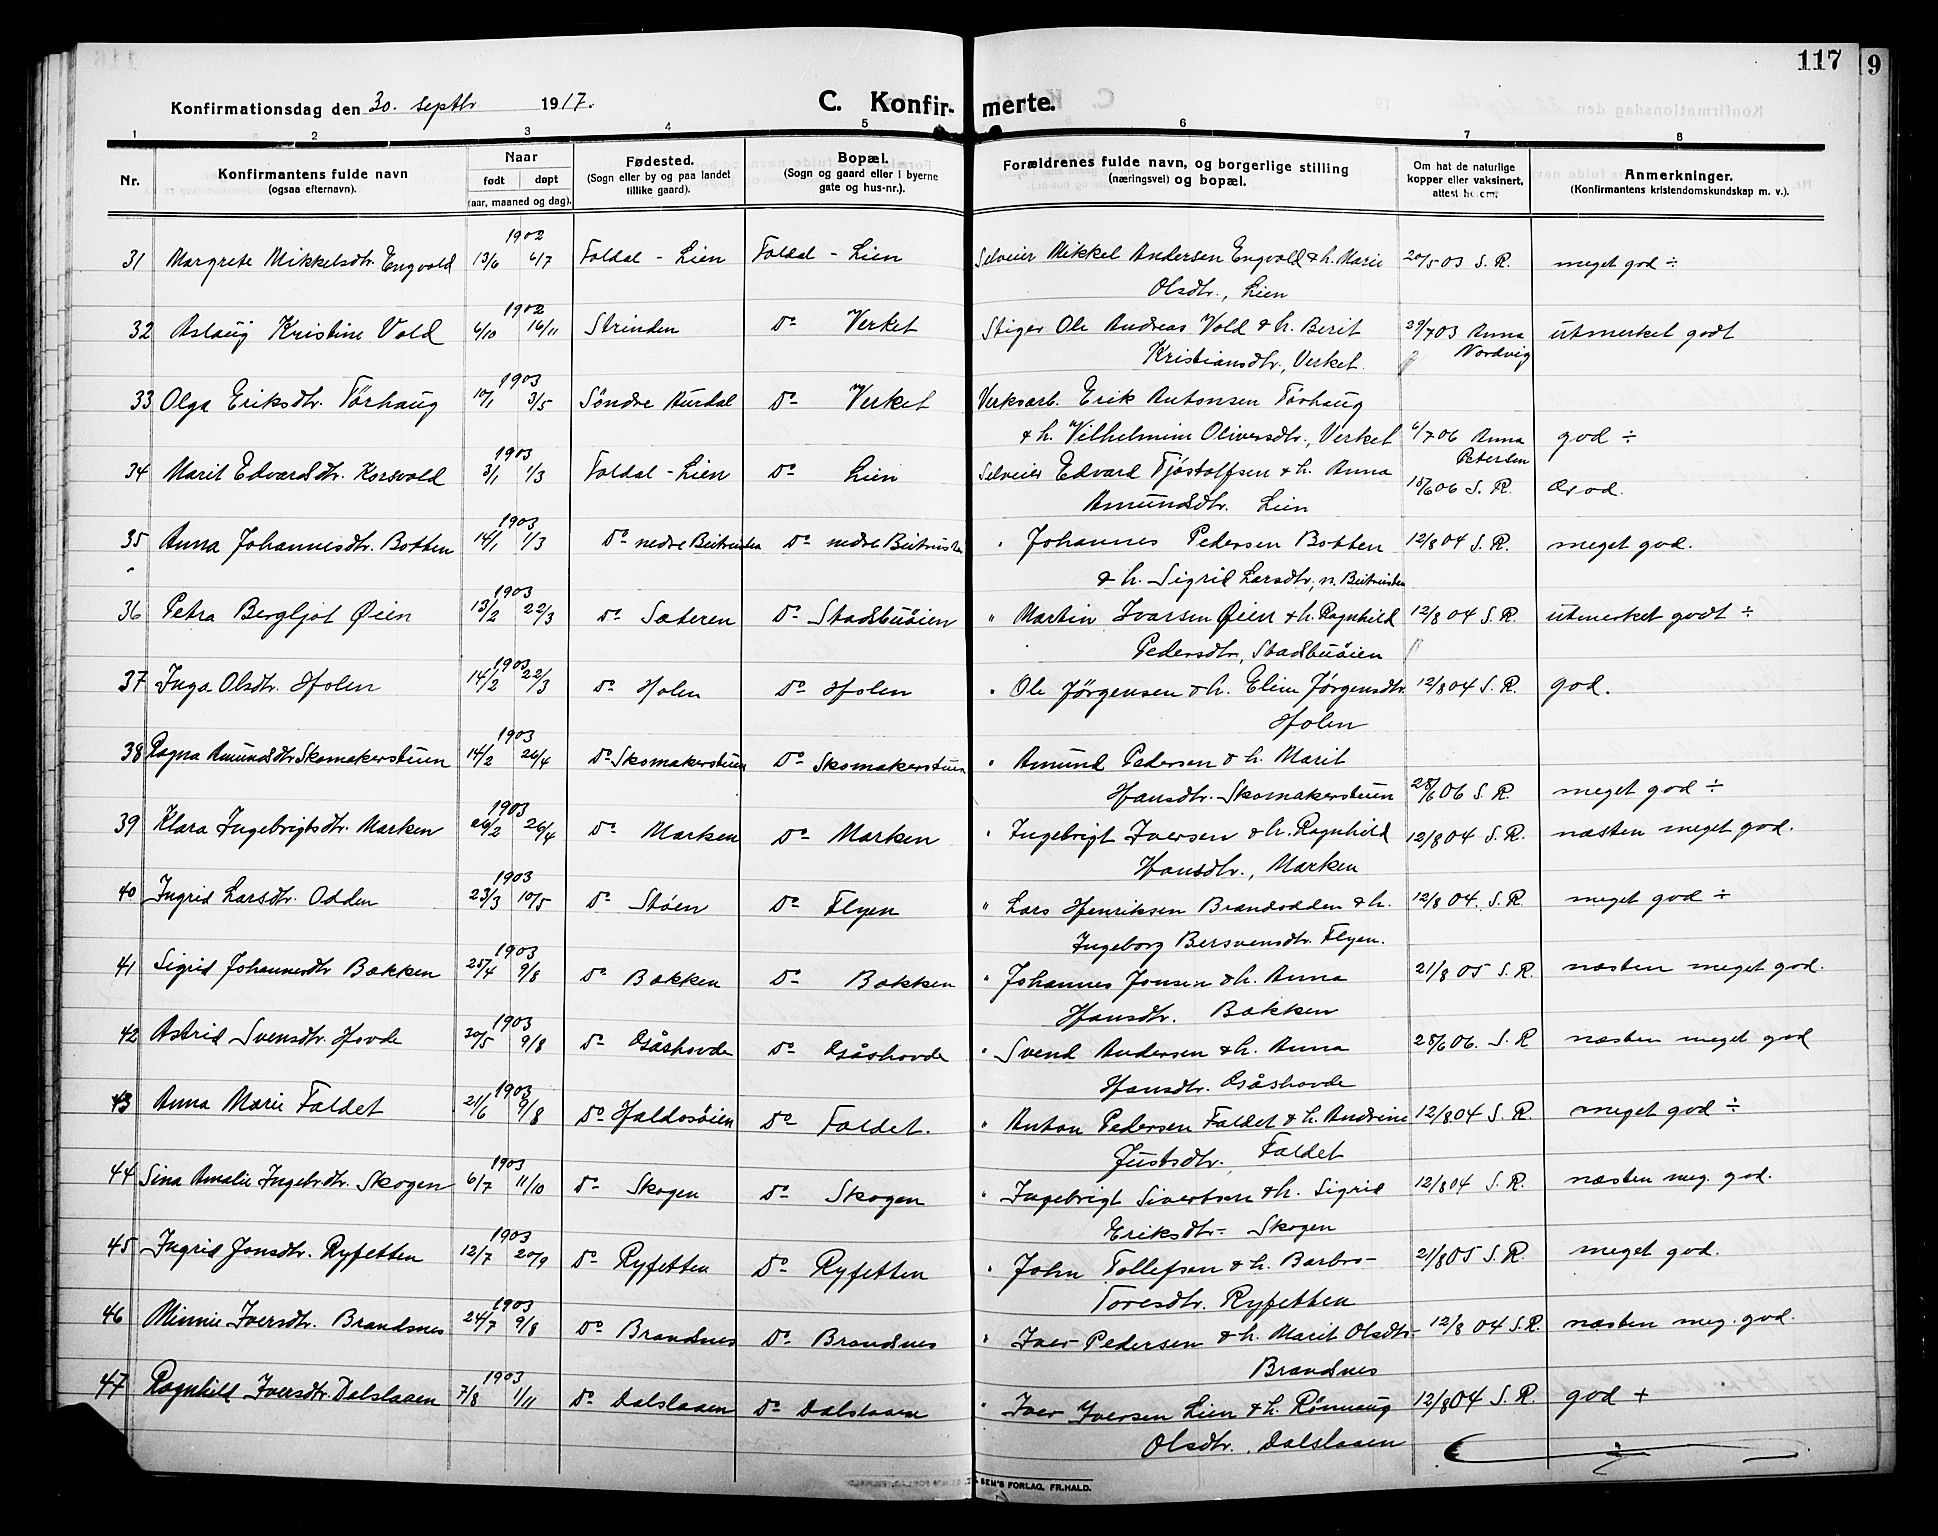 117
9
Konfirmationsdag den 30. septbr 1917.
C. Konfirmerte.
1 2 3 4 5 6 7 8
Nr.
Konfirmantens fulde navn
(ogsaa efternavn).
Naar
født døpt
(aar, maaned og dag).
Fødested.
(Sogn eller by og paa landet
tillike gaard).
Bopæl.
(Sogn og gaard eller i byerne
gate og hus-nr.).
Forældrenes fulde navn, og borgerlige stilling
(næringsvei) og bopæl.
Om hat de naturlige
kopper eller vaksinert,
attest herom.
Anmerkninger.
(Konfirmantens kristendomskundskap m. v.).
1902
31 Margrete Mikkelsdtr. Engvold 13/6 6/7 Foldal - Lien Foldal - Lien Selveier Mikkel Andersen Engvold & h. Marie 20/5 03 S. R. meget god ÷
Olsdtr., Lien
1902
32 Aslaug Kristine Vold 6/10 16/11 Strinden Do Verket Stiger Ole Andreas Vold & h. Berit 29/7 03 Anna utmerket godt
Kristiansdtr, Verket. Nordvig
1903
33 Olga Eriksdtr. Tørhaug 10/1 3/5 Søndre Aurdal Do Verket Verksarb. Erik Antonsen Tørhaug
& h. Vilhelmine Oliversdtr., Verket 6/7 06 Anna god ÷
Petersen
1903
34 Marit Edvardsdtr. Korsvold 3/1 1/3 Foldal - Lien Do Lien Selveier Edvard Tjøstolfsen & h. Anna
Amundsdtr. Lien 15/6 06 S. R.
1903
35 Anna Johannesdtr. Botten 14/1 1/3 Do nedre Do nedre " Johannes Pedersen Botten 12/8 04 S. R. meget god.
& h. Sigrid Larsdtr, n.
1903
36 Petra Bergljot Øien 13/2 22/3 Do Sæteren Do Stadsbuøien " Martin Ivarsen Øien & h. Ragnhild 12/8 04 S. R. utmerket godt ÷
Pedersdtr, Stadsbuøien
1903
37 Inga Olsdtr. Holen 14/2 22/3 Do Holen Do Holen " Ole Jørgensen & h. Eline Jørgensdtr 12/8 04 S. R. god.
Holen
1903
38 Ragna Amundsdtr Skomakerstuen 14/2 26/4 Do Skomakerstuen Do Skomakerstuen " Amund Pedersen & h. Marit
Hansdtr. Skomakerstuen 28/6 06 S. R. meget god ÷
1903
39 Klara Ingebrigtsdtr. Marken 26/2 26/4 Do Marken Do Marken " Ingebrigt Iversen & h. Ragnhild 12/8 04 S. R. næsten meget god.
Hansdtr., Marken
1903
40 Ingrid Larsdtr. Odden 23/3 10/5 Do Støen Do Flyen " Lars Henriksen Brandodden & h. 12/8 04. S. R. meget god ÷
Ingeborg Bersvensdtr. Flyen.
1903
41 Sigrid Johannesdtr Bakken 25/4 9/8 Do Bakken Do Bakken " Johannes Jonsen & h. Anna 21/8 05 S. R. næsten meget god.
Hansdtr. Bakken
1903
42 Astrid Svensdtr. Hovde 20/5 9/8 Do Gåshovde Do Gåshovde " Svend Andersen & h. Anna 28/6 06. S. R næsten meget god
Hansdtr. Gåshovde
1903
43 Anna Marie Faldet 21/6 9/8 Do Haldosøien Do Faldet. " Anton Pedersen Faldet & h. Andrine 12/8 04 S. R. meget god ÷
Justsdtr., Faldet
1903
44 Sina Amalie Ingebrdtr. Skogen 6/7 11/10 Do Skogen Do Skogen " Ingebrigt Sivertsen & h. Sigrid 12/8 04 S. R. næsten meg. god.
Eriksdtr- Skogen
1903
45 Ingrid Jonsdtr. Ryfetten 12/7 20/9 Do Ryfetten Do Ryfetten " John Tollefsen & h. Barbro- 21/8 05 S. R. meget god.
Toresdtr. Ryfetten
1903
46 Minnie Iversdtr. Brandsnes 24/7 9/8 Do Brandsnes Do Brandsnes " Iver Pedersen & h. Marit Olsdtr- 12/8 04 S. R. næsten meg. god.
Brandsnes
1903
47 Ragnhild Iversdtr. Dalslaaen 7/8 1/11 Do Dalslaaen Do Dalslaaen " Iver Iversen Lien & h. Rønnaug 12/8 04 S. R. god +
Olsdtr. Dalslaaen
SEM'S FORLAG, FR.HALD.